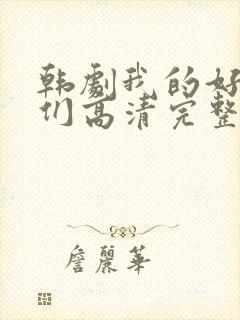 韩劇我的好
们高清完整
詹麗華